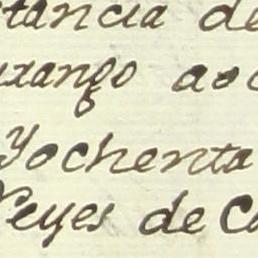 stancia de
axango aoc
Yochenta
Reyes de Ca